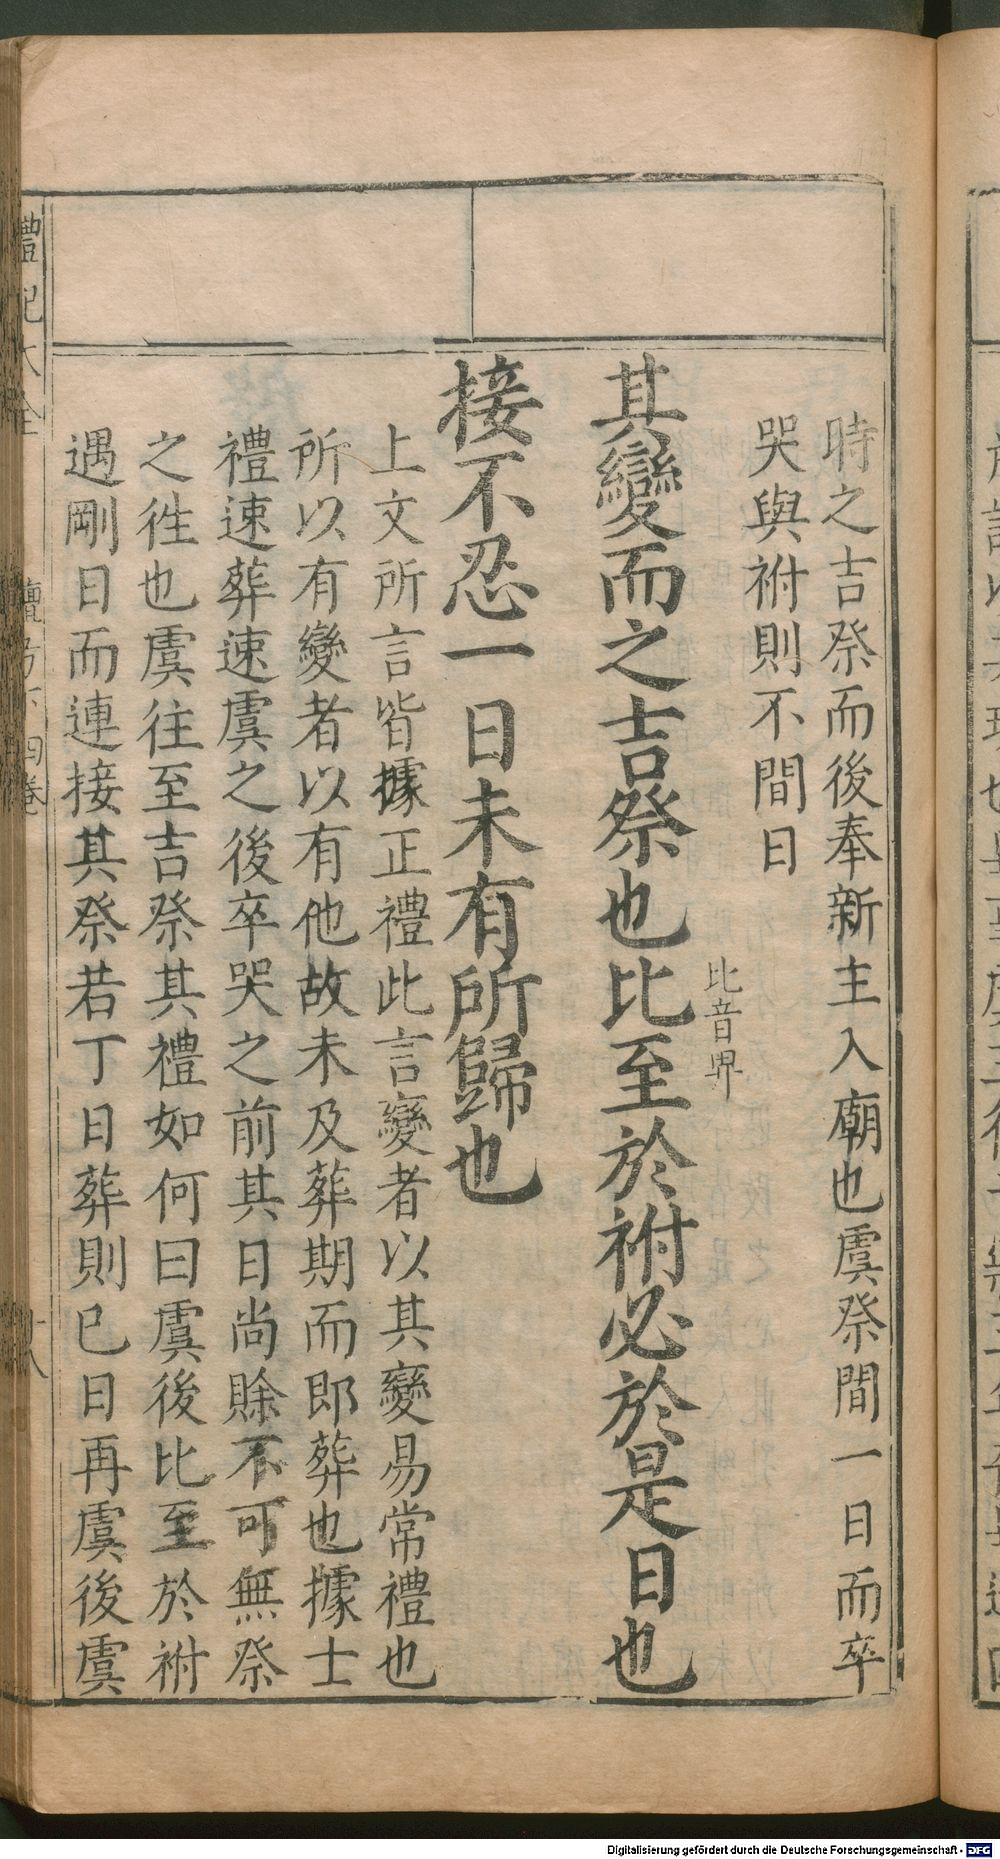 時之吉祭而後奉新主入廟也虞祭間一日而卒
哭與祔則不間日
比音畀
其變而之吉祭也比至於祔必於是日也
接不忍一日未有所歸也
上文所言皆據正禮此言變者以其變易常禮也
所以有變者以有他故未及葬期而即葬也據士
禮速葬速虞之後卒哭之前其日尚賖不可無祭
之徃也虞往至吉祭其禮如何曰虞後比至於祔
遇剛日而連接其祭若丁日葬則已日再虞後虞
禮記大全 檀弓下四卷 十八
Digitalisierung gefördert durch die Deutsche Forschungsgemeinschaft - DFG